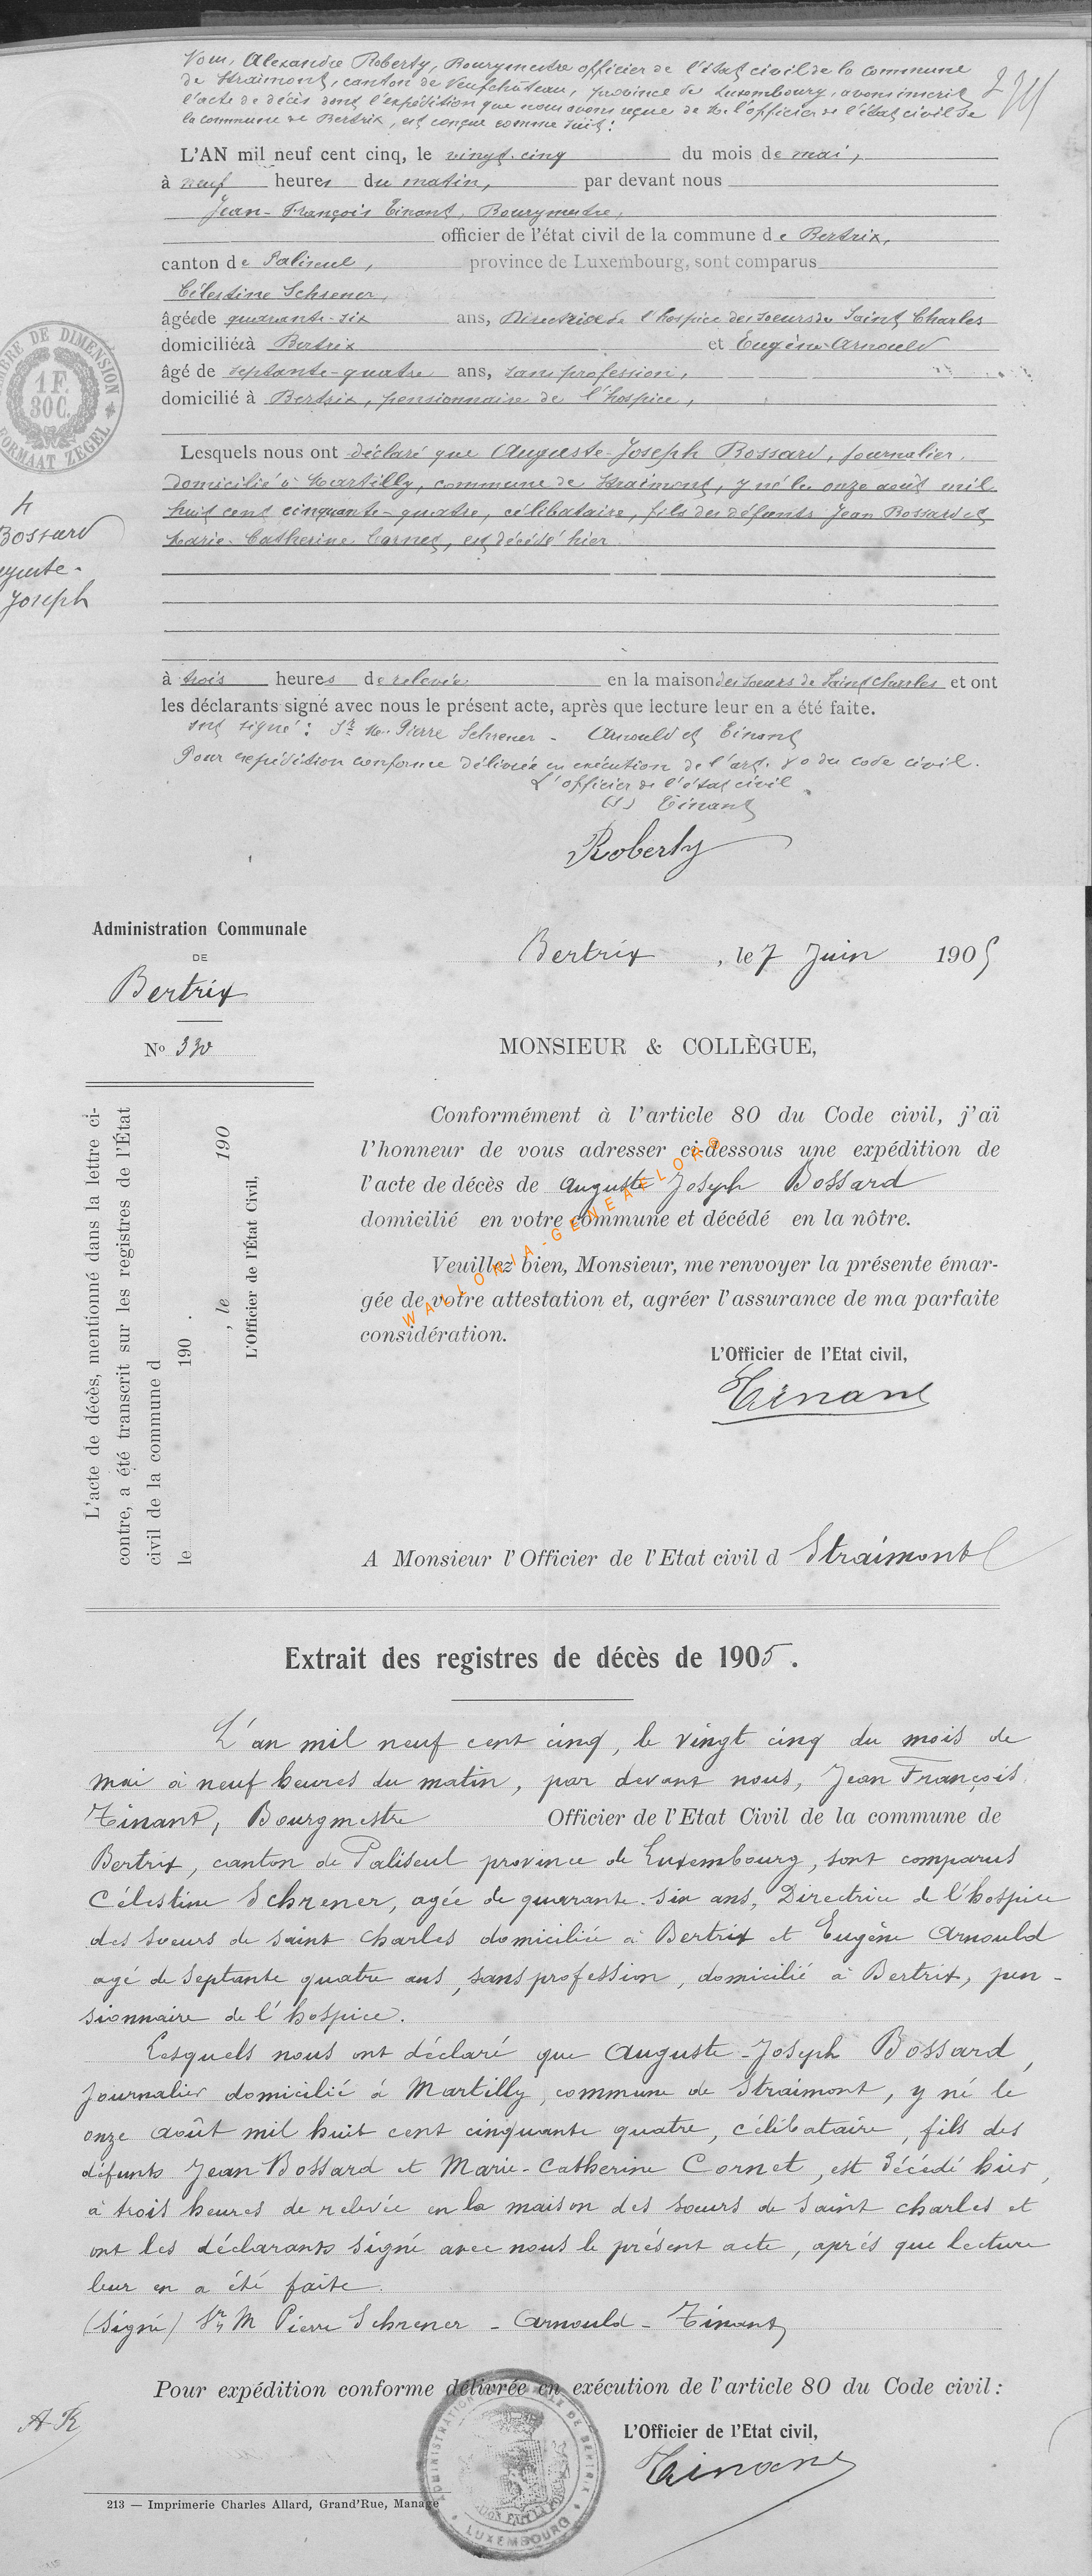 Nous, Alexandre Roberty, Bourgmestre officier de l'état civil de la commune
de Straimont, canton de Neufchâteau, province de Luxembourg, avons inscrit
l'acte de décès dont l'expédition que nous avons reçue de M. l'officier de l'état civil de
la commune de Bertrix, est conçue comme suit :
L'AN mil neuf cent cinq, le vingt-cinq du mois de mai,
à neuf heures du matin, par devant nous
Jean-François Tinant, Bourgmestre,
officier de l'état civil de la commune de Bertrix,
canton de Paliseul, province de Luxembourg, sont comparus
Célestine Schrener,
âgée de quarante-six ans, Directrice de l'hospice des soeurs de Saint Charles
domiciliée à Bertrix et Eugène Arnould
âgé de septante-quatre ans, sans profession,
domicilié à Bertrix, pensionnaire de l'hospice,
TIMBRE DE DIMENSION
1 F.
30 C.
FORMAAT ZEGEL
Lesquels nous ont déclaré que Auguste-Joseph Bossard, journalier,
domicilié à Martilly, commune de Straimont, y né le onze août mil
huit cent cinquante-quatre, célibataire, fils des défunts Jean Bossard et
Marie-Catherine Cornet, est décédé hier
4
Bossard
Auguste-
Joseph
à trois heures de relevée en la maison des soeurs de Saint Charles et ont
les déclarants signé avec nous le présent acte, après que lecture leur en a été faite.
ont signé : Sr M. Pierre Schrener - Arnould et Tinant
Pour expédition conforme délivrée en exécution de l'art. 80 du code civil.
L'officier de l'état civil
(s) Tinant
Roberty
Administration Communale
DE
Bertrix
No 330
Bertrix, le 7 Juin 1905
MONSIEUR & COLLÈGUE,
Conformément à l'article 80 du Code civil, j'aï
l'honneur de vous adresser ci-dessous une expédition de
l'acte de décès de Auguste Joseph Bossard
domicilié en votre commune et décédé en la nôtre.
Veuillez bien, Monsieur, me renvoyer la présente émar-
gée de votre attestation et, agréer l'assurance de ma parfaite
considération.
WALLONIA-GENEAFLORG
L'Officier de l'Etat civil,
Tinant
L'acte de décès, mentionné dans la lettre ci-
contre, a été transcrit sur les registres de l'État
civil de la commune d
le 190 .
, le 190
L'Officier de l'État Civil,
A Monsieur l'Officier de l'Etat civil d Straimont
Extrait des registres de décès de 1905.
L'an mil neuf cent cinq, le vingt cinq du mois de
mai à neuf heures du matin, par devant nous, Jean François
Tinant, Bourgmestre Officier de l'Etat Civil de la commune de
Bertrix, canton de Paliseul province de Luxembourg, sont comparus
Célestine Schrener, agée de quarante-six ans, Directrice de l'hospice
des soeurs de saint Charles domiciliée à Bertrix et Eugène Arnould
agé de septante quatre ans, sans profession, domicilié à Bertrix, pen-
sionnaire de l'hospice.
Lesquels nous ont déclaré que Auguste-Joseph Bossard,
journalier domicilié à Martilly, commune de Straimont, y né le
onze août mil huit cent cinquante quatre, célibataire, fils des
défunts Jean Bossard et Marie-Catherine Cornet, est décédé hier,
à trois heures de relevée en la maison des soeurs de saint charles et
ont les déclarants signé avec nous le présent acte, après que lecture
leur en a été faite.
(Signé) Sr M Pierre Schrener - Arnould - Tinant
Pour expédition conforme délivrée en exécution de l'article 80 du Code civil :
L'Officier de l'Etat civil,
Tinant
AR
ADMINISTRATION DE BERTRIX
LUXEMBOURG
213 — Imprimerie Charles Allard, Grand'Rue, Manage